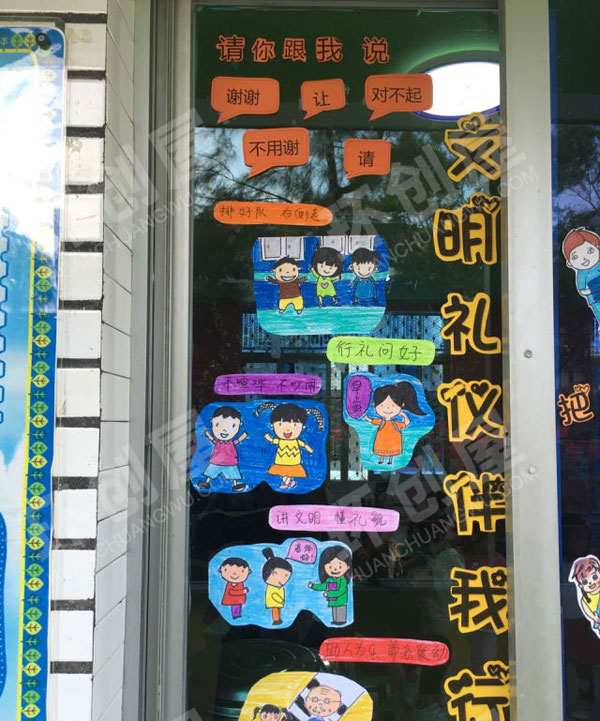 请你跟我说
谢谢
让
对不起
不用谢
请
文明礼仪伴我行
排好队 右侧走
行礼问好
不喧哗 不吵闹
早上好
讲文明 懂礼貌
老师好!
助人为乐
把
环创屋
HUANCHUANGWU.COM